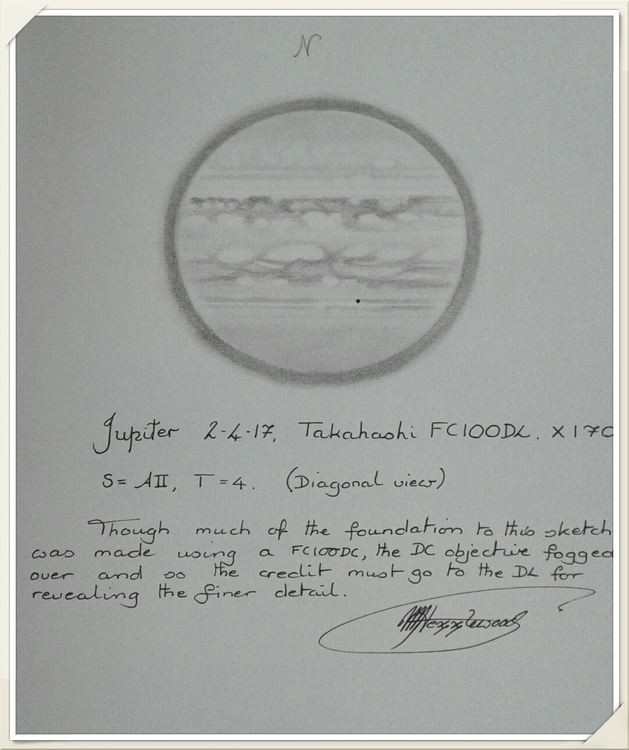 N
Jupiter 2-4-17, Takahashi FC100DL. X170
S= AII, T=4. (Diagonal view)
Though much of the foundation to this sketch
was made using a FC100DC, the DC objective fogged
over and so the credit must go to the DL for
revealing the finer detail.